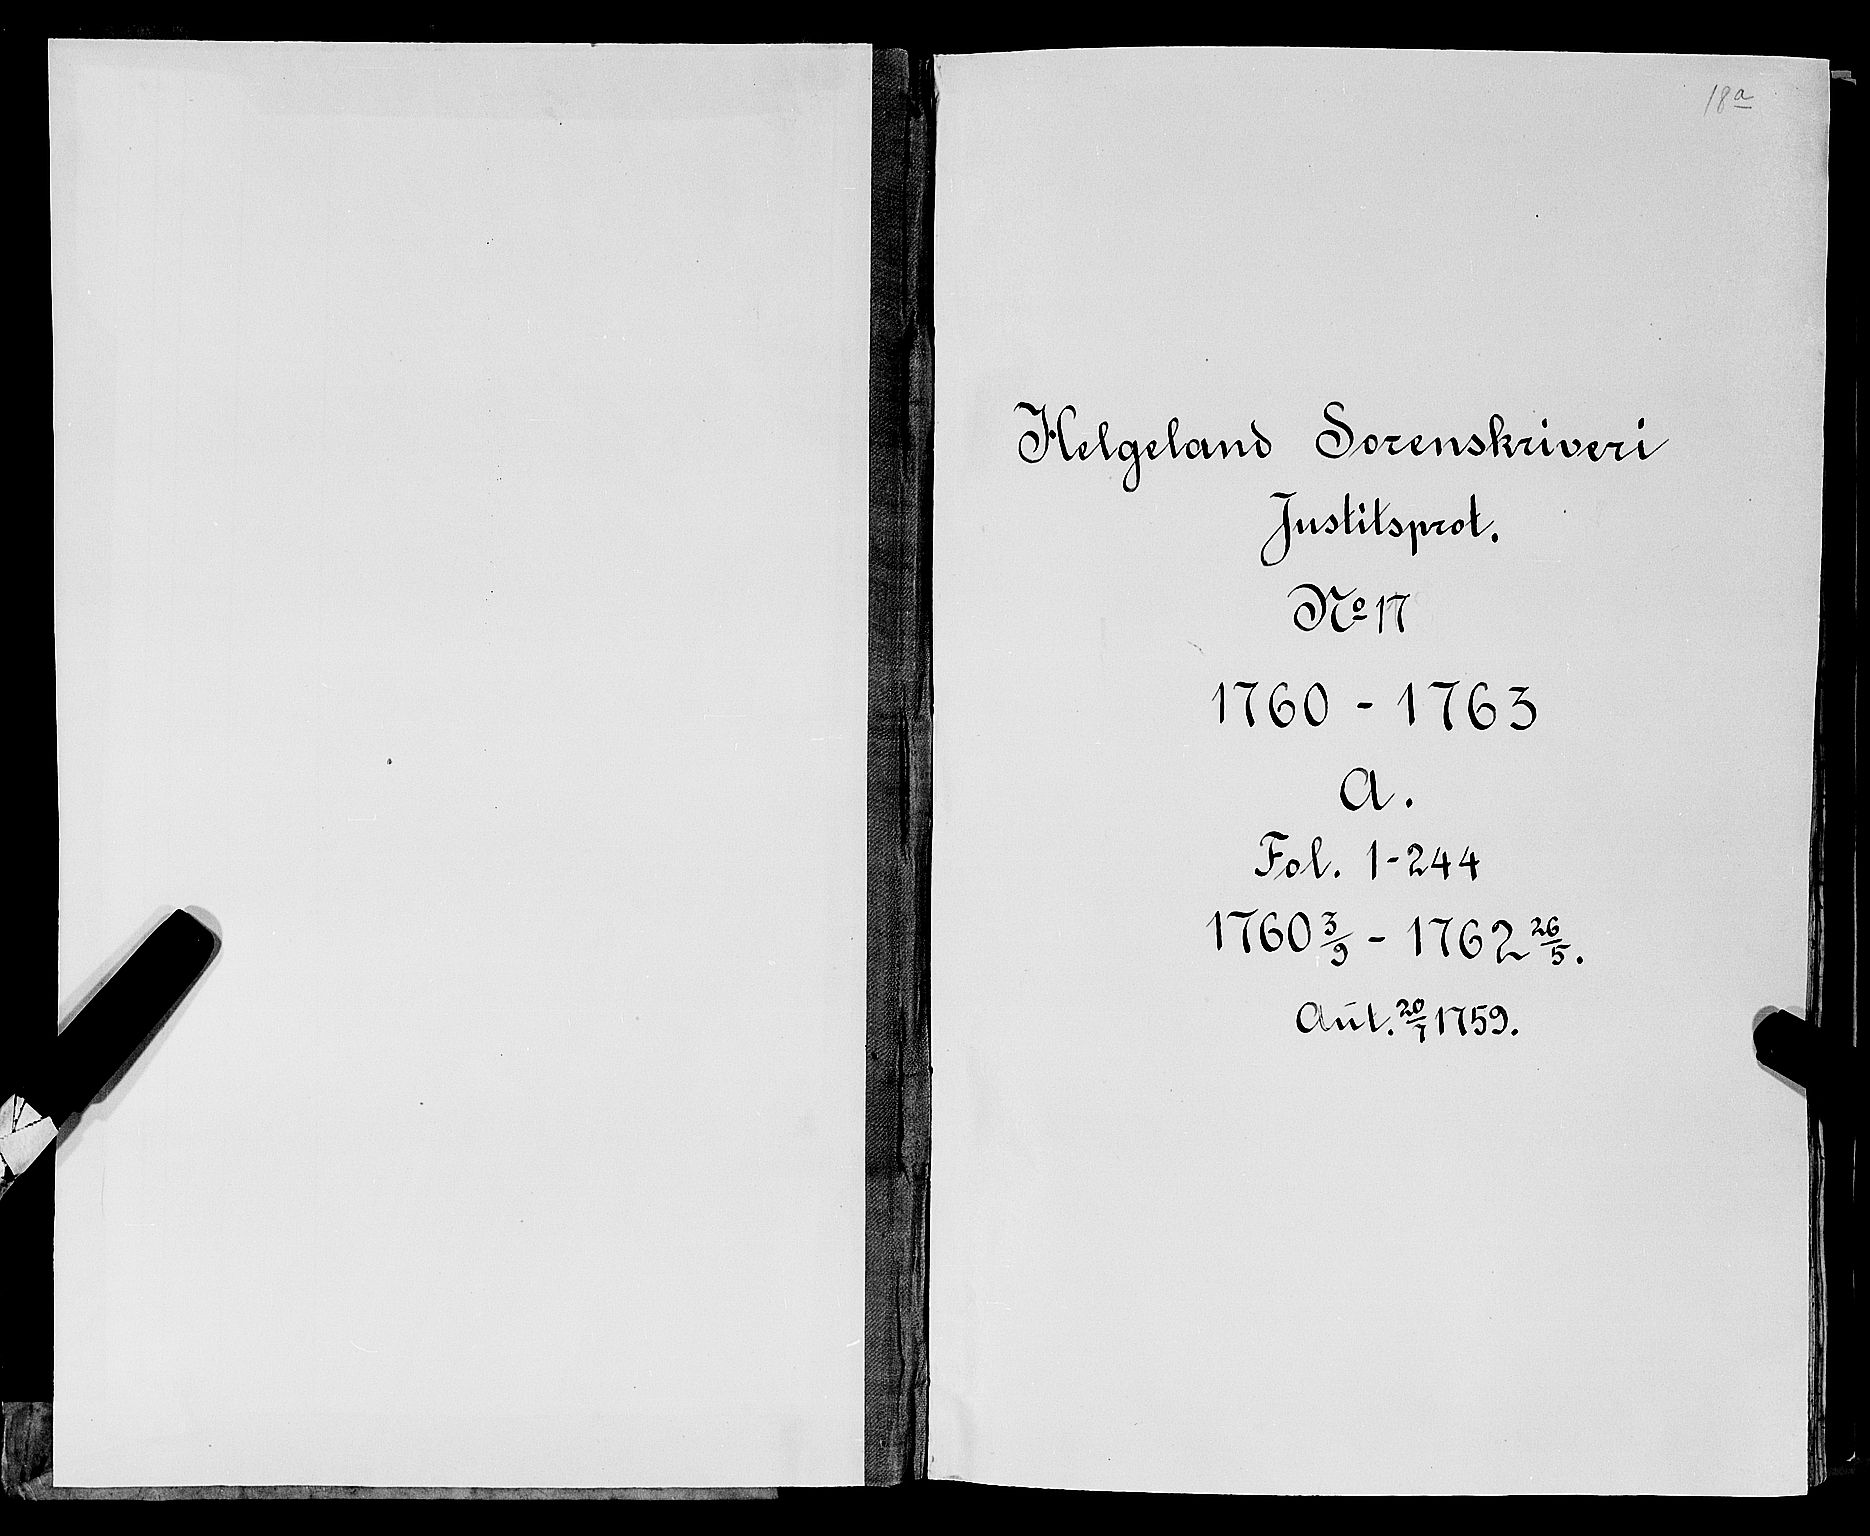 18a
Helgeland Sorenskriveri
Justitsprot.
No 17
1760 - 1763
A.
Fol. 1-244
1760 3/9 - 1762 26/5.
Aut. 20/7 1759.